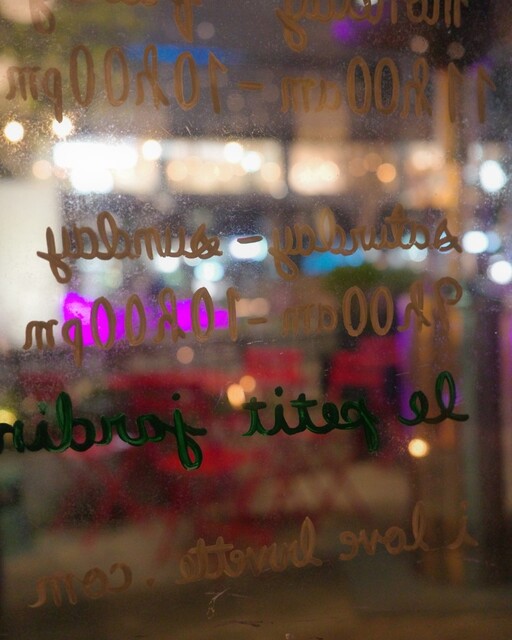 monday - friday
11h00am - 10h00pm
saturday - sunday
9h00am - 10h00pm
le petit jardin
i love buvette.com